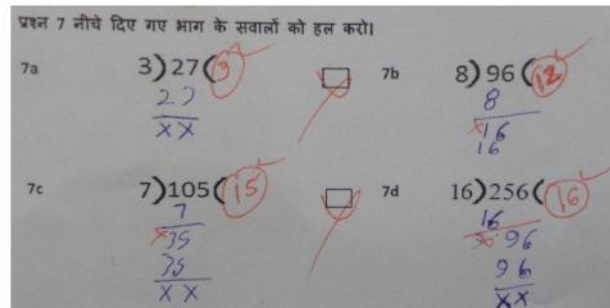 प्रश्न 7 नीचे दिए गए भाग के सवालों को हल करो।
7a 3)27(9
27
XX
7b 8)96(12
8
x16
16
7c 7)105(15
7
x35
35
XX
7d 16)256(16
16
x96
96
XX